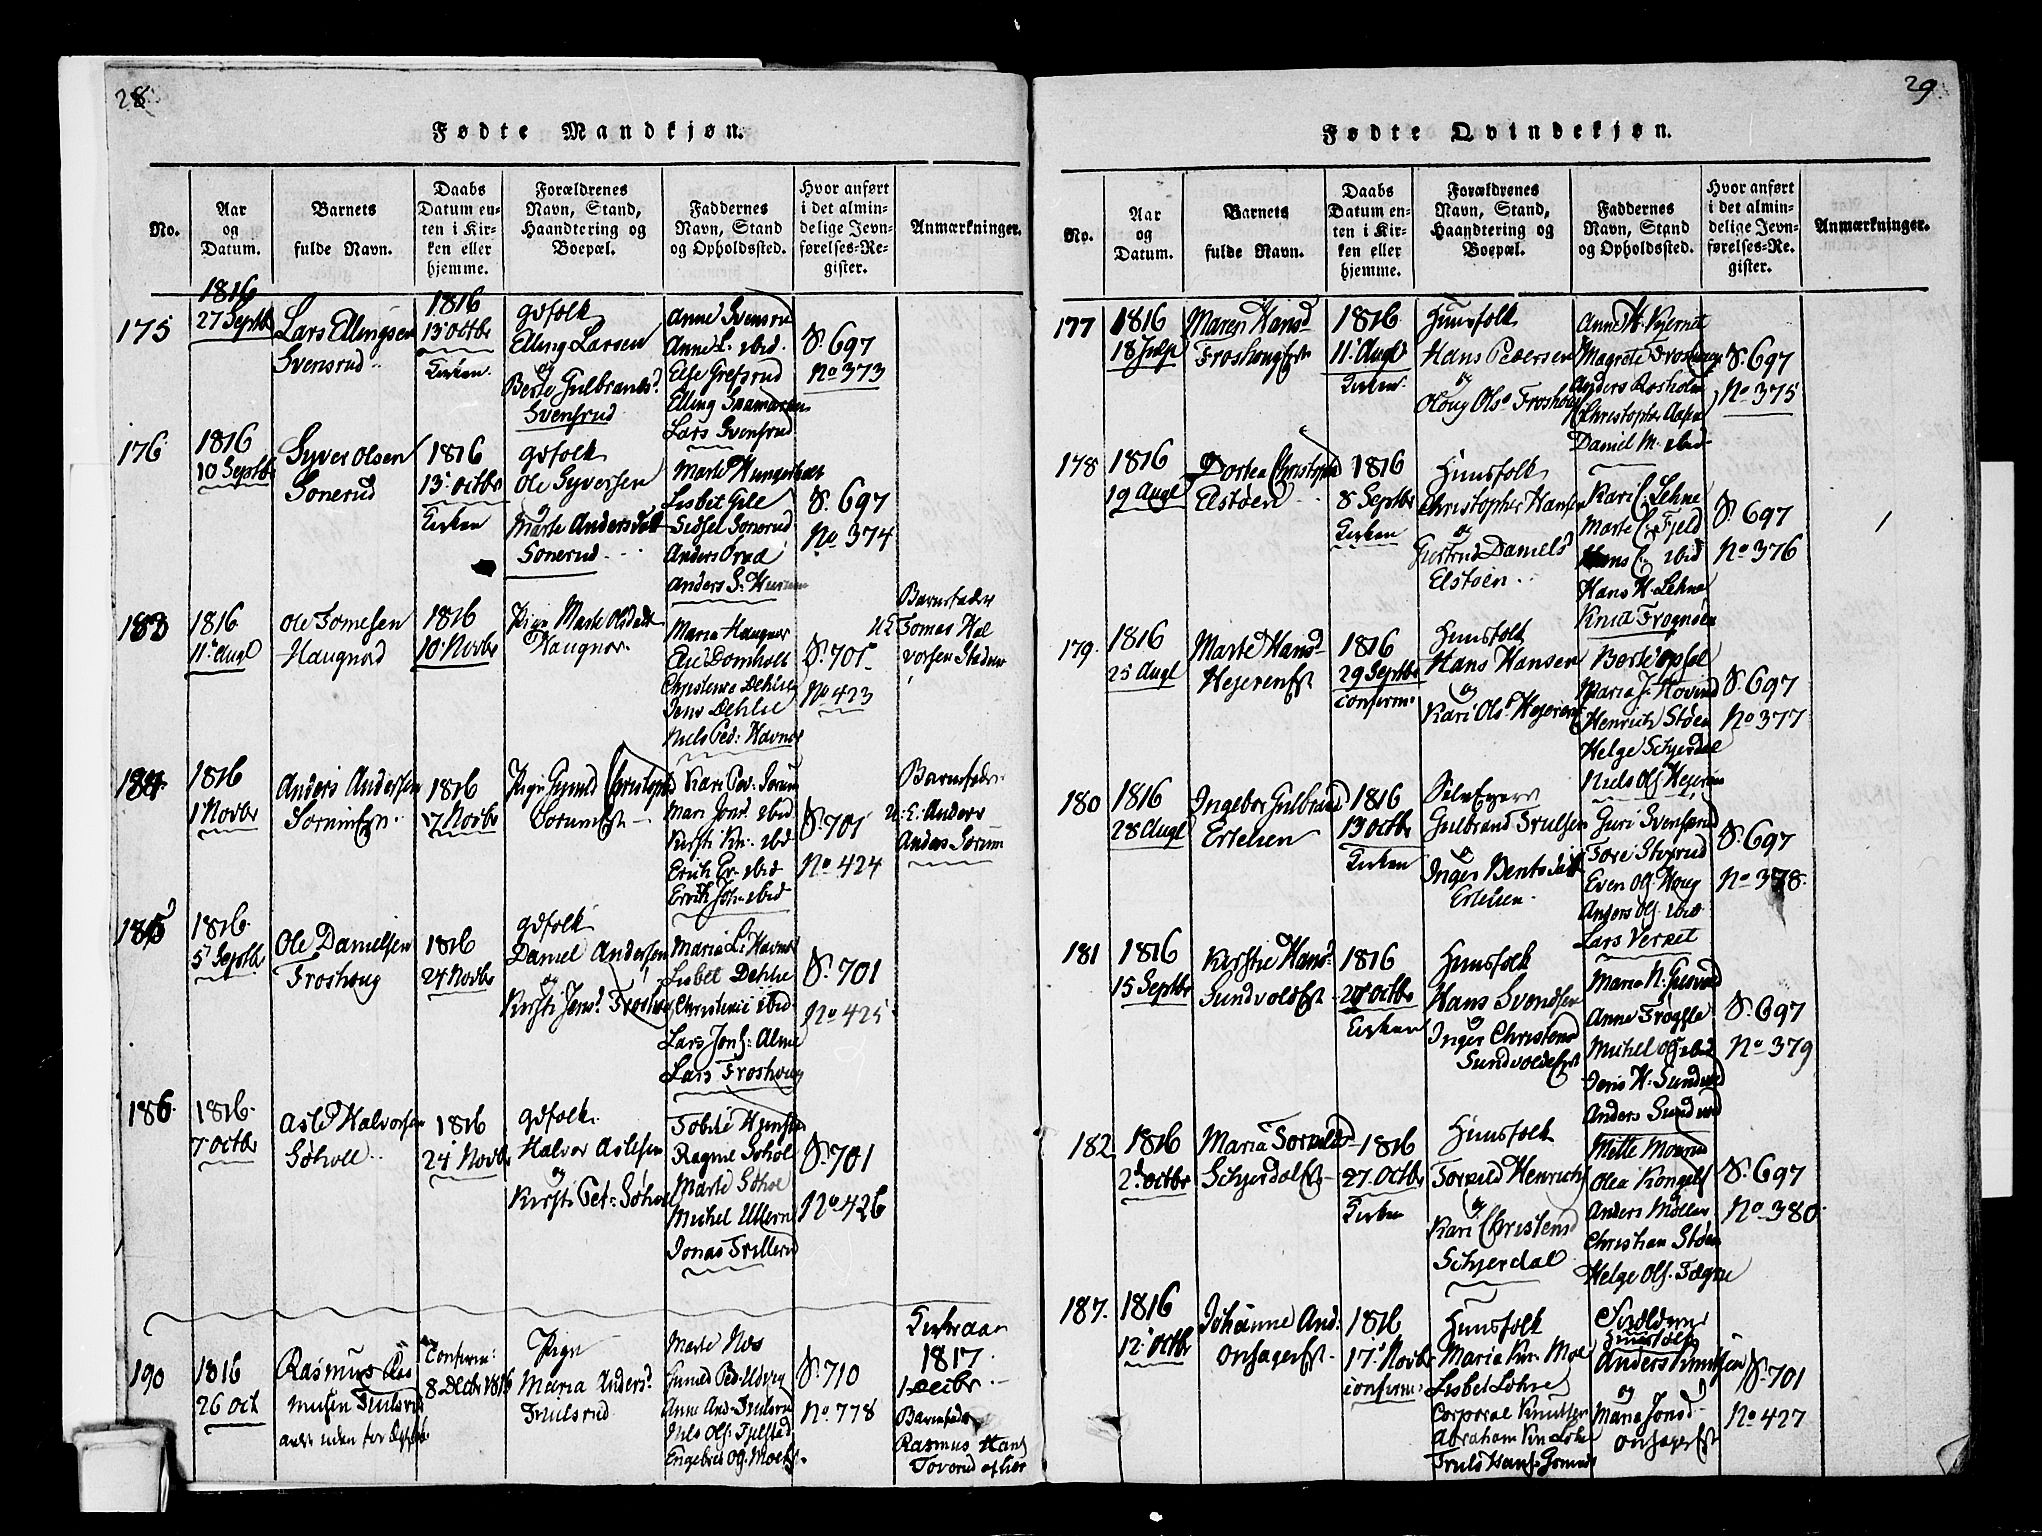 28.
Fødte Mandkjøn.
No.
Aar
og
Datum.
Barnets
fulde Navn.
Daabs
Datum en-
ten i Kir-
ken eller
hjemme.
Forældrenes
Navn, Stand,
Haandtering og
Boepæl.
Faddernes
Navn, Stand
og Opholdssted.
Hvor anført
i det almin-
delige Jevn-
førelses-Re-
gister.
Anmærkninger.
175
1816
27 Septbr
Lars Ellingsen
Svensrud
1816
13 octbr
Kirken
gdfolk
Elling Larsen
og
Berte Gulbrands
Svensrud
Anne Svensrud
Anne L. ibid.
Else Grefsrud
Elling
Lars Svensrud
S. 697
No 373
176
1816
10 Septbr
Syver Olsen
Sonerud
1816
13 octbr
Kirken
gdfolk
Ole Syversen
og
Marte Andersdatt
Sonerud
Marte
Lisbet Gile
Sidsel Sonerud
Anders
Anders S.
S. 697
No 374
183
1816
11 Augt
Ole Tomesen
Haugnord
1816
10 Novbr
Pige Marte Olsdatt
Haugnor
Maria Haugnor
Domholt
Christense Dehlie
Jens Dehlie
Niels Ped: Havnor
S. 701
No 423
Barnefader
U E Tomas Hal
vorsen
184
1816
1 Novbr
Anders Andersen
Sorum
1816
17 Novbr
Pige Gunild Christophd
Sorum
Kari Ped: Sorum
Mari Jons. ibid
Kirsti Kn: ibid
Erich Er. ibid
Erich Joh: ibid
S. 701
No 424
Barnefader
U. E: Anders
Anders Sorum
185
1816
5 Septbr
Ole Danielsen
Froshoug
1816
24 Novbr
gdfolk
Daniel Andersen
og
Kirsti Jens. Froshoug
Maria L: Havnor
Lisbet Dehlie
Christense ibid
Lars Jons: Alme
Lars Froshoug
S. 701
No 425
186.
1816
7 octbr
Asle Halvorsen
Søhole
1816
24 Novbr
gdfolk
Halvor Aslesen
og
Kirsti Pet: Søhole
Ragne Søhol
Marte Søhol
Michel Ullern
Jonas Trillerud
S. 701
No 426
190
1816
26 oct
Rasmus Ras
musen Trulsrud
Confirm:
8 Decbr 1816
Pige
Maria Anders.
Trulsrud
Marte Næs
Gunild Ped:
Anne And: Trulsrud
Nils Ols. Fjelstad
Engebret
S. 710
No 778
1817
1 Decbr
Barnefader
Rasmus Hans
29
Fødte Qvindekjøn.
No.
Aar
og
Datum.
Barnets
fulde Navn.
Daabs
Datum en-
ten i Kir-
ken eller
hjemme.
Forældrenes
Navn, Stand,
Haandtering og
Boepæl.
Faddernes
Navn, Stand
og Opholdssted.
Hvor anført
i det almin-
delige Jevn-
førelses-Re-
gister.
Anmærkninger.
177
1816
18 July
Maren Hansd
1816
11 Augt
Kirken
Huusfolk
Hans Pedersen
og
Oloug Ols. Froshoug
Anne H.
Magrete Froshoug
Anders Rosholm
Christopher
Daniel M. ibid
S. 697
No 375
178
1816
19 Augt
Dortea Christophd
Elstøen
1816
8 Septbr
Kirken
Huusfolk
Christopher Hansen
og
Gurtrud Daniels
Elstøen
Kari C. Lehne
Marte C. Fjeld
Hans C. ibid
Hans H. Lehne
Knud Frognøen
S. 697
No 376
179.
1816
25 Augt
Marte Hans
1816
29 Septbr
confirm.
Huusfolk
Hans Hansen
og
Kari Ols.
Berte Opsal
Maria J. Hovind
Henrich Støen
Helge Schjerdal
Niels Ols.
S. 697
No 377
180
1816
28 Augt
Ingebor Gulbrand
1816
13 octbr
Kirken
Gulbrand Trulsen
og
Inger Bentsdatt
Guri Svensrud
Tore
Even Ols. Houg
Anders Ols. ibid
Lars Vernet
S. 697
No 378.
181
1816
15 Septbr
Kirstie Hans
Sundvold
1816
27 octbr
Kirken
Huusfolk
Hans Svendsen
og
Inger Christens
Sundvold
Maria N.
Anne Frogsle
Michel Ols ibid
Jens H. Sundvold
Anders Sundvold
S. 697
No 379
182.
1816
2 octbr
Maria Torvildsd
Schjerdal
1816
27 Octbr
Kirken
Huusfolk
Torvild Henrichs
og
Kari Christens
Schjerdal
Mette
Olea Kongels
Anders Møller
Christian Støen
Helge Ols. Fægne
S. 697
No 380
187.
1816
12 octbr
Johanne And:
Onsager
1816
17 Novbr
confirm.
Huusfolk
Maria Kn. Moe
Lisbet Lohre
Corporal Knutsen
Abraham Kn Lohre
Truls Hans.
Huusfolk
Anders Knutsen
og
Maria Jonsd
Onsager
S. 701
No 427